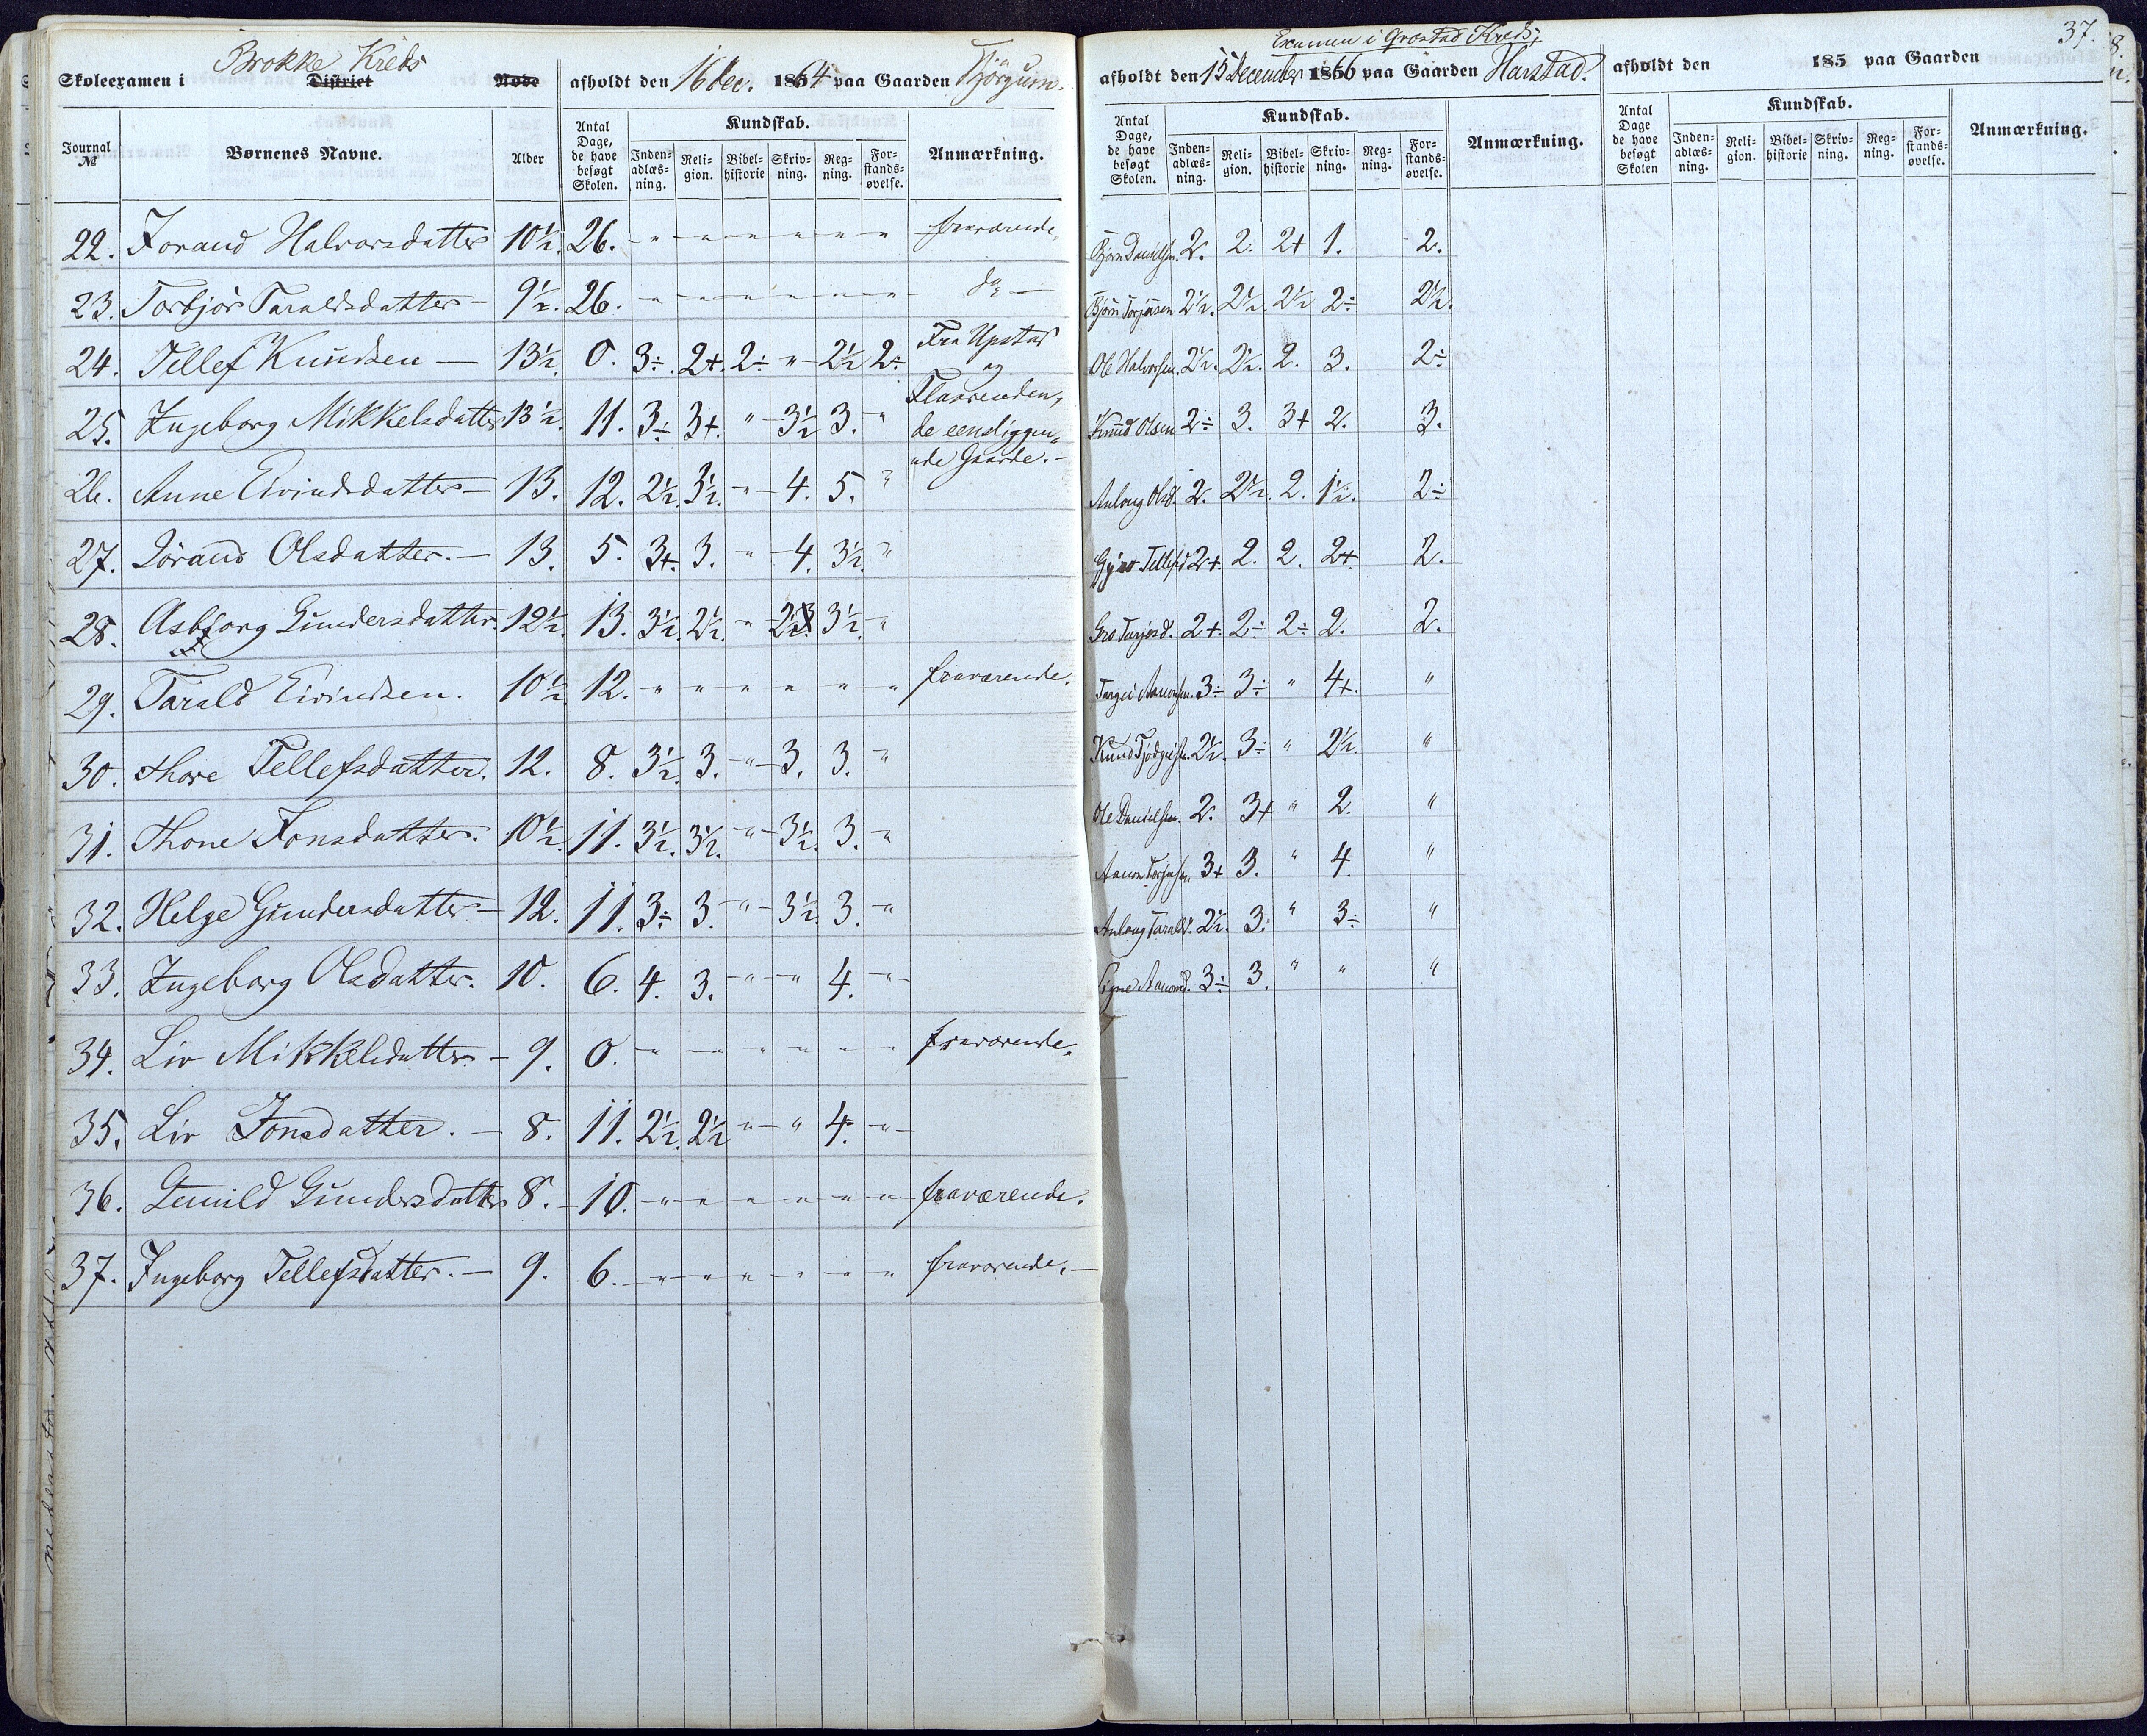 Brokke Kreds
Skoleexamen i District Rode afholdt den 16 dec. 1864 paa Gaarden Tjörgum.
Journal № Børnenes Navne. Alder Antal Dage, de have besøgt Skolen. Kundskab. Anmærkning.
Inden-adlæs-ning. Reli-gion. Bibel-historie Skriv-ning. Reg-ning. For-stands-øvelse.
22. Jorand Halvorsdatter 10½ 26. " " " " " " fraværende.
23. Torbjør Taraldsdatter 9½. 26. " " " " " " do
24. Tellef Knudsen 13½. 0. 3÷. 2+. 2÷ " 2½ 2÷ Fra Upstad og
25. Ingeborg Mikkelsdatter 13½. 11. 3÷ 3+. " 3½ 3. " Flaarenden, de eensliggen-
26. Anne Eivindsdatter 13. 12. 2½. 3½. " 4. 5. " nde Gaarde.
27. Jorand Olsdatter. 13. 5. 3+. 3. " 4. 3½. "
28. Asbjorg Gundersdatter. 12½. 13. 3½. 2½. " 2½. 3½. "
29. Tarald Eivindsen. 10½. 12. " " " " " " fraværende.
30. Thore Tellefsdatter. 12. 8. 3½. 3. " 3. 3. "
31. Thone Jonsdatter. 10½. 11. 3½. 3½. " 3½. 3. "
32. Helge Gundersdatter 12. 11. 3÷ 3. " 3½. 3. "
33. Ingeborg Olsdatter. 10. 6. 4. 3. " " 4. "
34. Liv Mikkelsdatter. 9. 0. " " " " " " fraværende.
35. Liv Jonsdatter. 8. 11. 2½. 2½ " " 4. "
36. Gunild Gundersdatter 8. 10. " " " " " " fraværende.
37. Ingeborg Tellefsdatter. 9. 6. " " " " " " fraværende.
37.
Examen i Kreds;
afholdt den 15 December 1866 paa Gaarden Harstad.
Antal Dage, de have besøgt Skolen. Kundskab. Anmærkning.
Inden-adlæs-ning. Reli-gion. Bibel-historie Skriv-ning. Reg-ning. For-stands-øvelse.
Bjørn Danielsen. 2. 2. 2+ 1. 2.
Bjørn Torjusen 2½. 2½. 2½ 2÷ 2½.
Ole Halvorsen. 2½. 2½. 2. 3. 2÷
Knud Olsen 2÷ 3. 3+ 2. 3.
Anlaug Olsd. 2. 2½. 2. 1½. 2÷
Gyro Tellefsd 2+. 2. 2. 2+. 2.
Gro Tarjesd. 2+. 2÷ 2÷ 2. 2.
Targei Aanonsen. 3÷ 3÷ " 4+. "
Knud Tjodgeirsen. 2½. 3÷ " 2½. "
Ole Danielsen. 2. 3+ " 2. "
Aanon Torjusen 3+ 3. " 4. "
Anlaug Taraldsd. 2½. 3. " 3÷ "
Signe Aanonsd. 3÷ 3. " " "
afholdt den 185 paa Gaarden
Antal Dage de have besøgt Skolen Kundskab. Anmærkning.
Inden-adlæs-ning. Reli-gion. Bibel-historie Skriv-ning. Reg-ning. For-stands-øvelse.